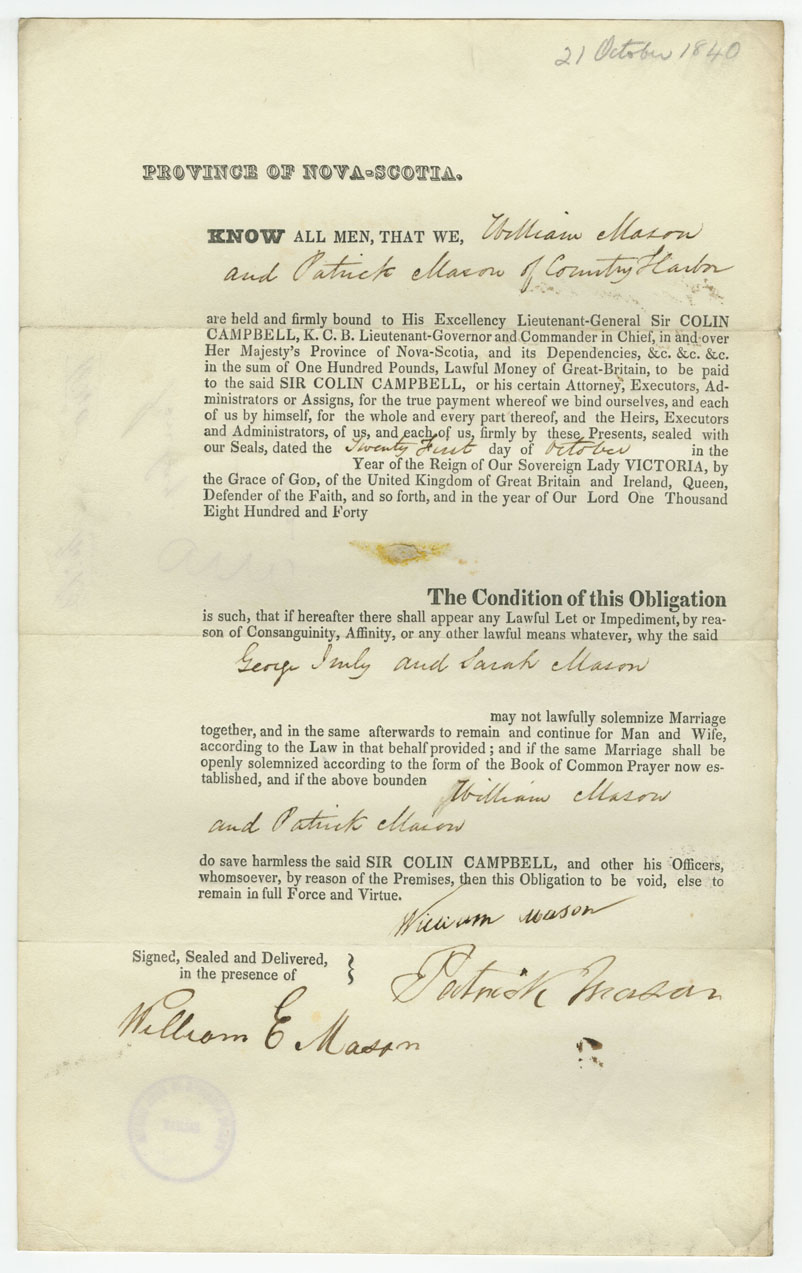 21 October 1840
PROVINCE OF NOVA-SCOTIA.
KNOW ALL MEN, THAT WE, William Mason
and Patrick Mason of Country Harbor
are held and firmly bound to His Excellency Lieutenant-General Sir COLIN
CAMPBELL, K. C. B. Lieutenant-Governor and Commander in Chief, in and over
Her Majesty's Province of Nova-Scotia, and its Dependencies, &c. &c. &c.
in the sum of One Hundred Pounds, Lawful Money of Great-Britain, to be paid
to the said SIR COLIN CAMPBELL, or his certain Attorney, Executors, Ad-
ministrators or Assigns, for the true payment whereof we bind ourselves, and each
of us by himself, for the whole and every part thereof, and the Heirs, Executors
and Administrators, of us, and each of us, firmly by these Presents, sealed with
our Seals, dated the Twenty First day of October in the
Year of the Reign of Our Sovereign Lady VICTORIA, by
the Grace of GOD, of the United Kingdom of Great Britain and Ireland, Queen,
Defender of the Faith, and so forth, and in the year of Our Lord One Thousand
Eight Hundred and Forty
The Condition of this Obligation
is such, that if hereafter there shall appear any Lawful Let or Impediment, by rea-
son of Consanguinity, Affinity, or any other lawful means whatever, why the said
George Imly and Sarah Mason
may not lawfully solemnize Marriage
together, and in the same afterwards to remain and continue for Man and Wife,
according to the Law in that behalf provided; and if the same Marriage shall be
openly solemnized according to the form of the Book of Common Prayer now es-
tablished, and if the above bounden
William Mason
and Patrick Mason
do save harmless the said SIR COLIN CAMPBELL, and other his Officers,
whomsoever, by reason of the Premises, then this Obligation to be void, else to
remain in full Force and Virtue.
William Mason
Signed, Sealed and Delivered,
in the presence of
Patrick Mason
William E Mason